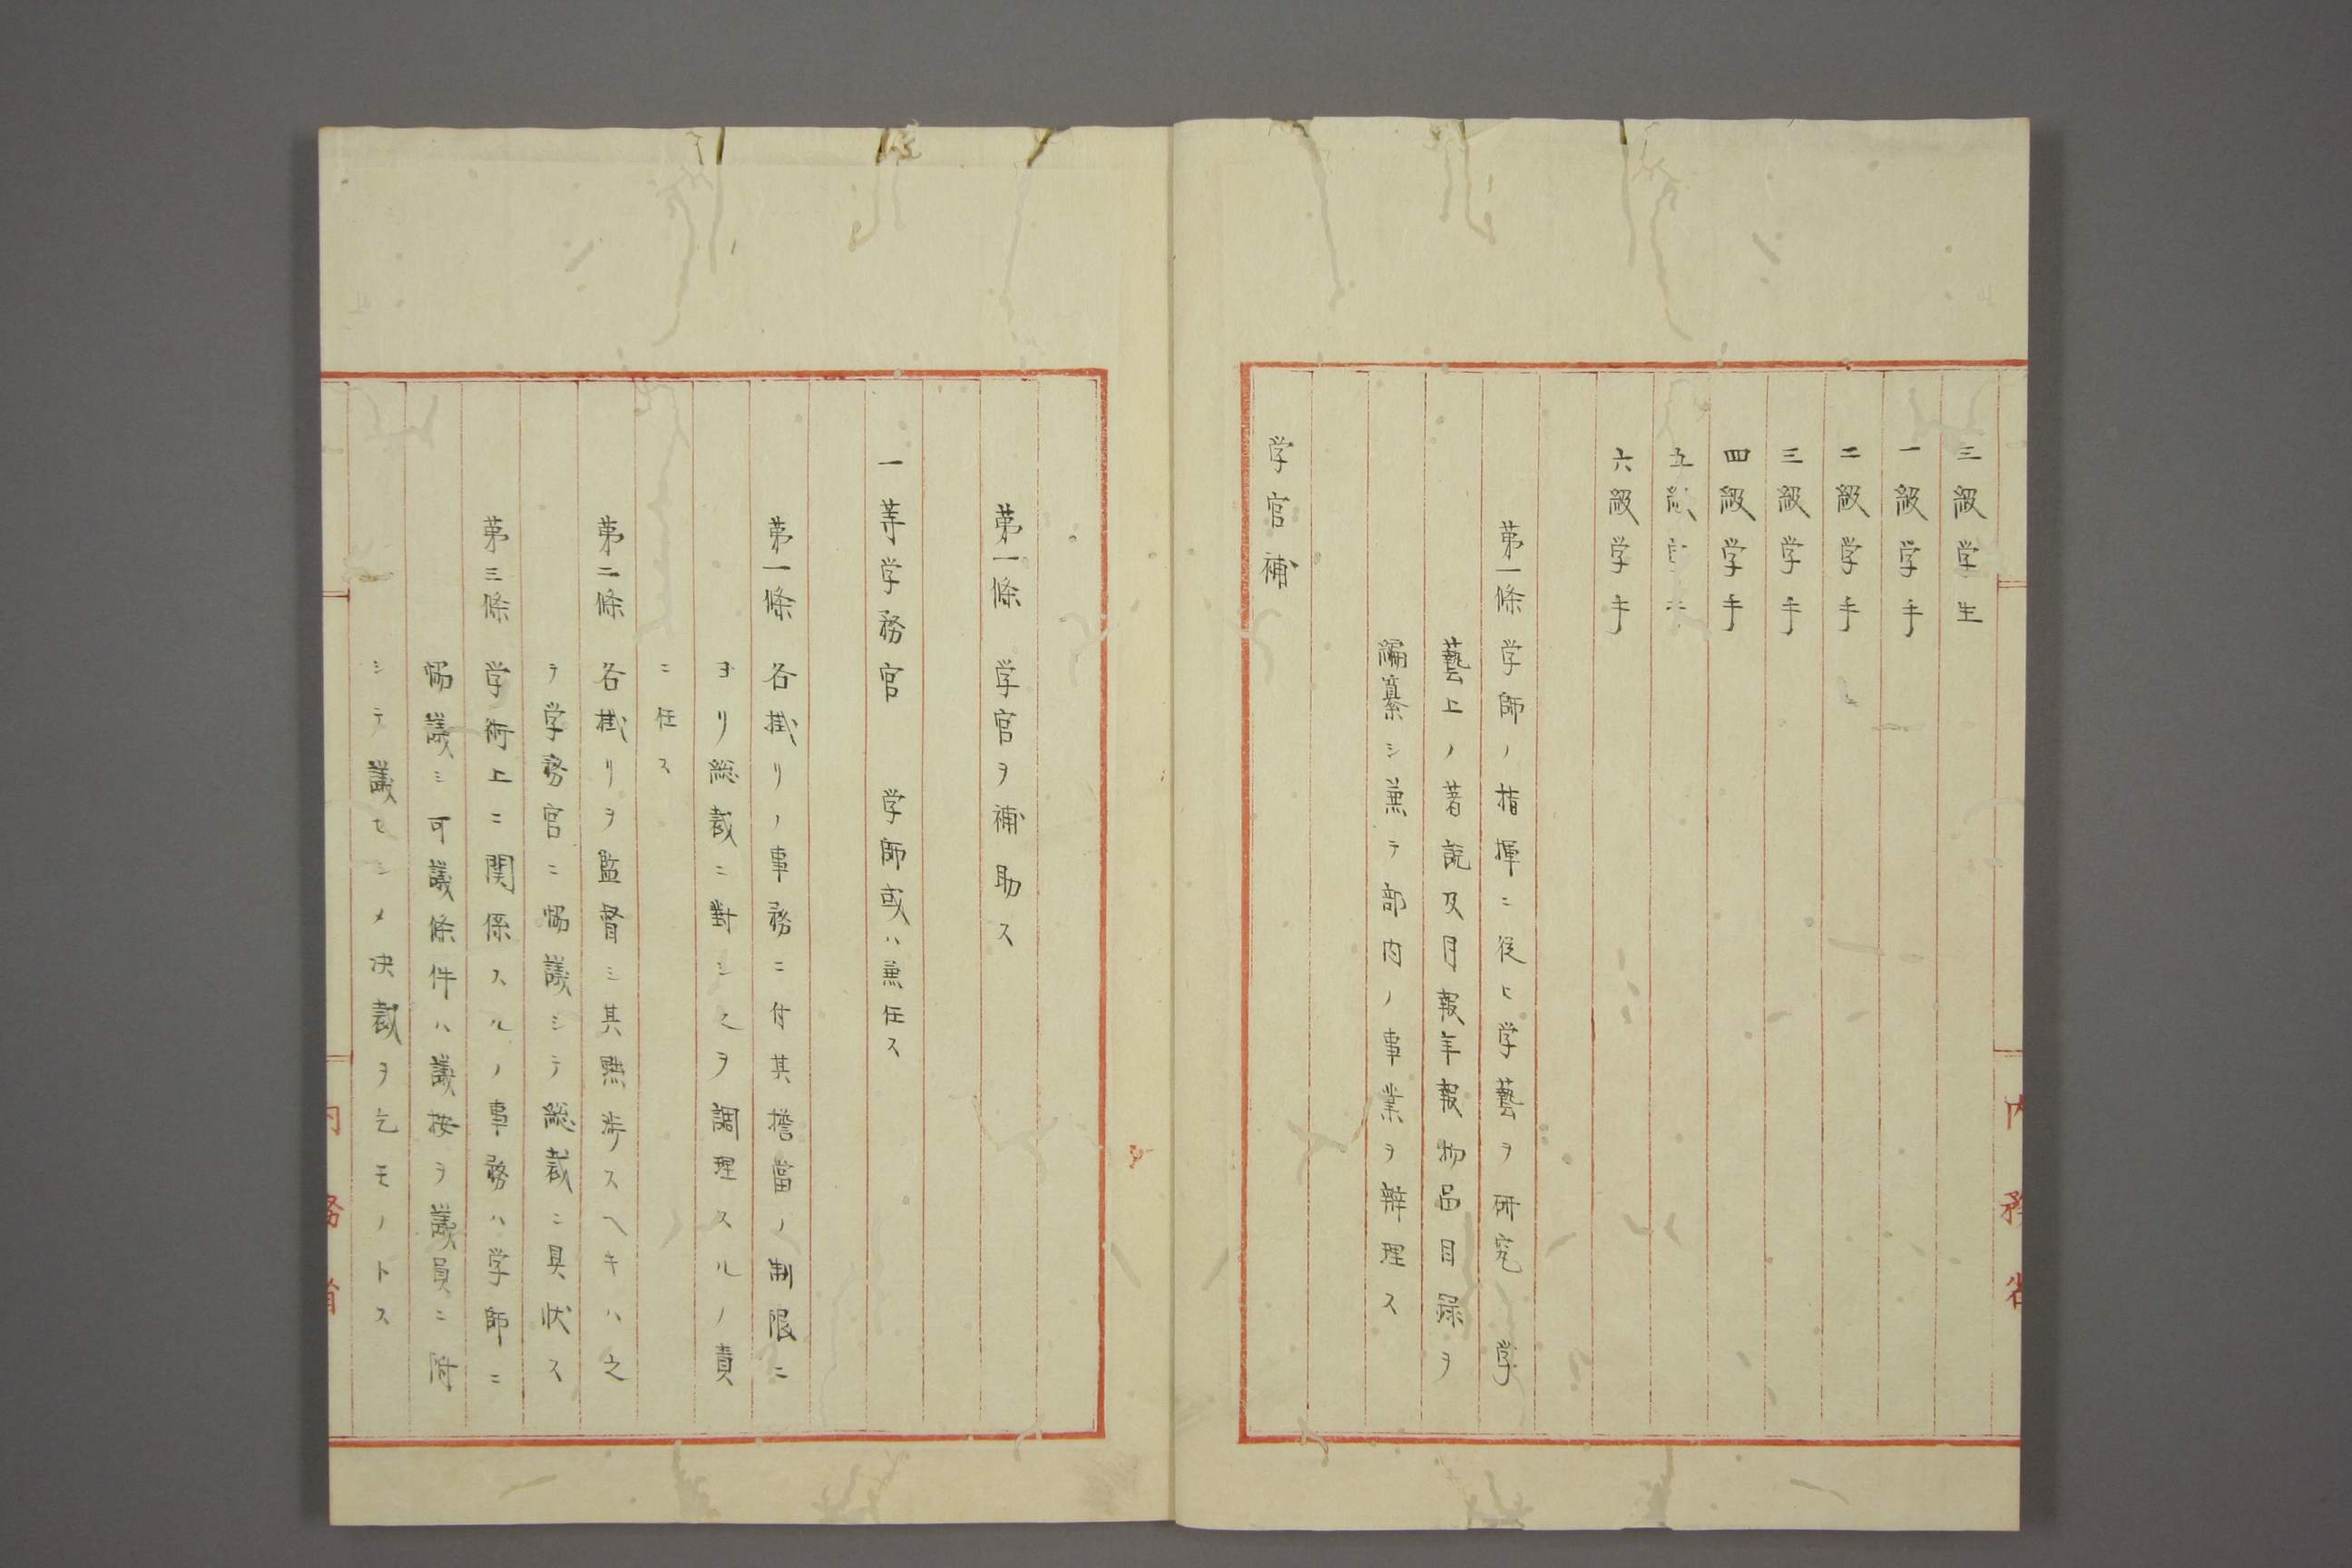 三級学生
一級学手
二級学手
三級学手
四級学手
五級学手
六級学手
第一條 学師ノ指揮ニ從ヒ学藝ヲ研究 学
藝上ノ著説及月報年報物品目録ヲ
編纂シ兼テ部内ノ事業ヲ辨理ス
学官補
第一條 学官ヲ補助ス
一等学務官 学師或ハ兼任ス
第一條 各掛リノ事務ニ付其擔當ノ制限ニ
ヨリ総裁ニ對シ之ヲ調理スルノ責
ニ任ス
第二條 各掛リヲ監督シ其黜陟スヘキハ之
ヲ学務官ニ協議シテ総裁ニ具状ス
第三條 学術上ニ関係スルノ事務ハ学師ニ
協議シ可議條件ハ議按ヲ議員ニ附
シテ議セシメ决裁ヲ乞モノトス
内務省
内務省